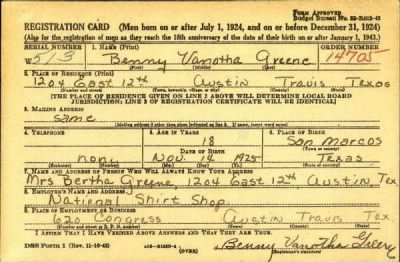 FORM APPROVED
REGISTRATION CARD (Men born on or after July 1, 1924, and on or before December 31, 1924)
(Also for the registration of men as they reach the 18th anniversary of the date of their birth on or after January 1, 1943.)
SERIAL NUMBER 1. NAME (Print) ORDER NUMBER
W513 Benny Vanotha Greene 14705
(First) (Middle) (Last)
2. PLACE OF RESIDENCE (Print)
1204 East 12th Austin Travis Texas
[THE PLACE OF RESIDENCE GIVEN ON LINE 2 ABOVE WILL DETERMINE LOCAL BOARD
JURISDICTION; LINE 2 OF REGISTRATION CERTIFICATE WILL BE IDENTICAL]
3. MAILING ADDRESS
same
4. TELEPHONE 5. AGE IN YEARS 6. PLACE OF BIRTH
18 San Marcos
DATE OF BIRTH
non Nov. 14 1925 Texas
7. NAME AND ADDRESS OF PERSON WHO WILL ALWAYS KNOW YOUR ADDRESS
Mrs Bertha Greene, 1204 East 12th Austin Tex
8. EMPLOYER'S NAME AND ADDRESS
National Shirt Shop
9. PLACE OF EMPLOYMENT OR BUSINESS
620 Congress Austin Travis Tex.
I AFFIRM THAT I HAVE VERIFIED ABOVE ANSWERS AND THAT THEY ARE TRUE.
DSS Form 1 (OVER) Benny Vanotha Greene
(Registrant's signature)